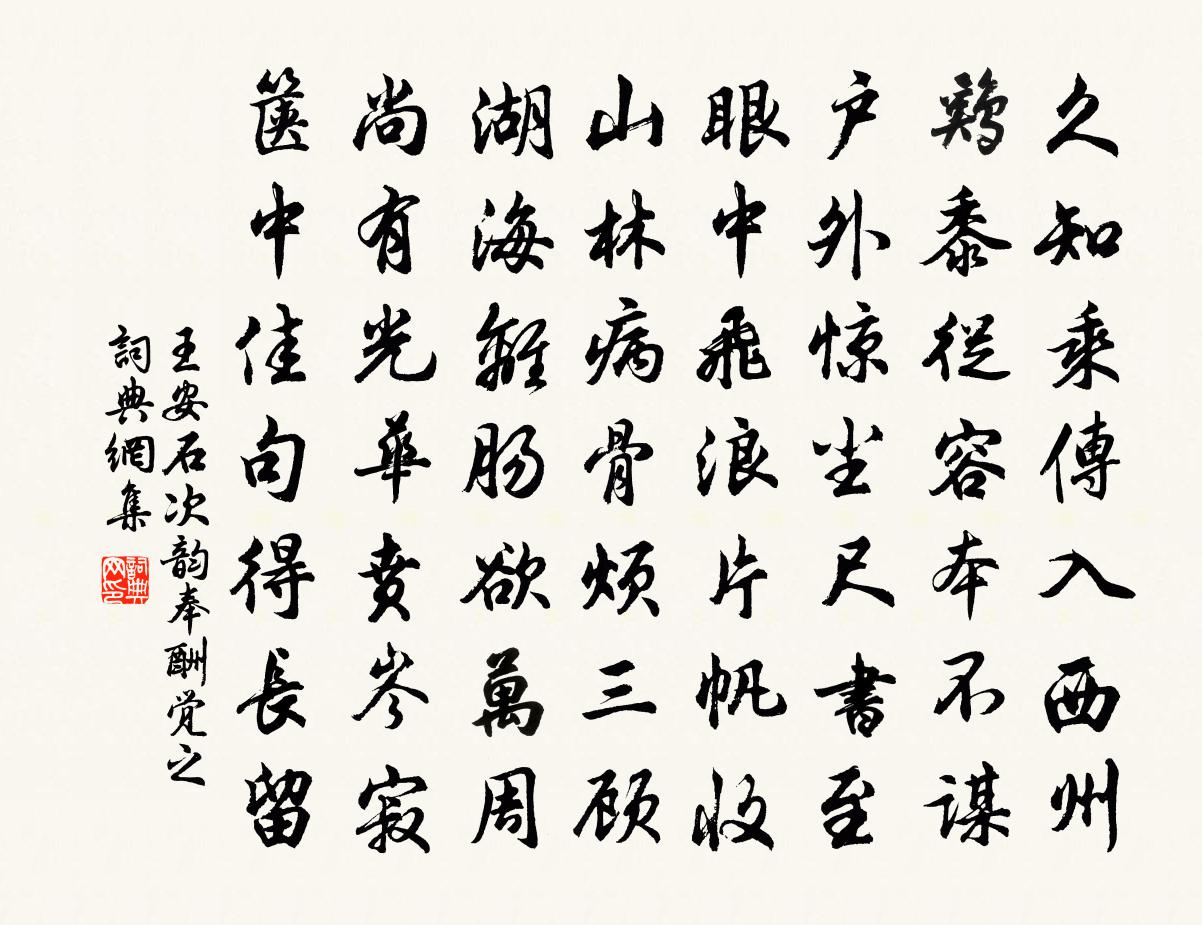 久知乘傳入西州
鷄黍從容本不謀
户外惊坐尺書至
眼中飛浪片帆收
山林病骨煩三顾
湖海離肠欲萬周
尚有光華賁岑寂
篋中佳句得長留
王安石次韵奉酬觉之
詞典網集
詞典网印